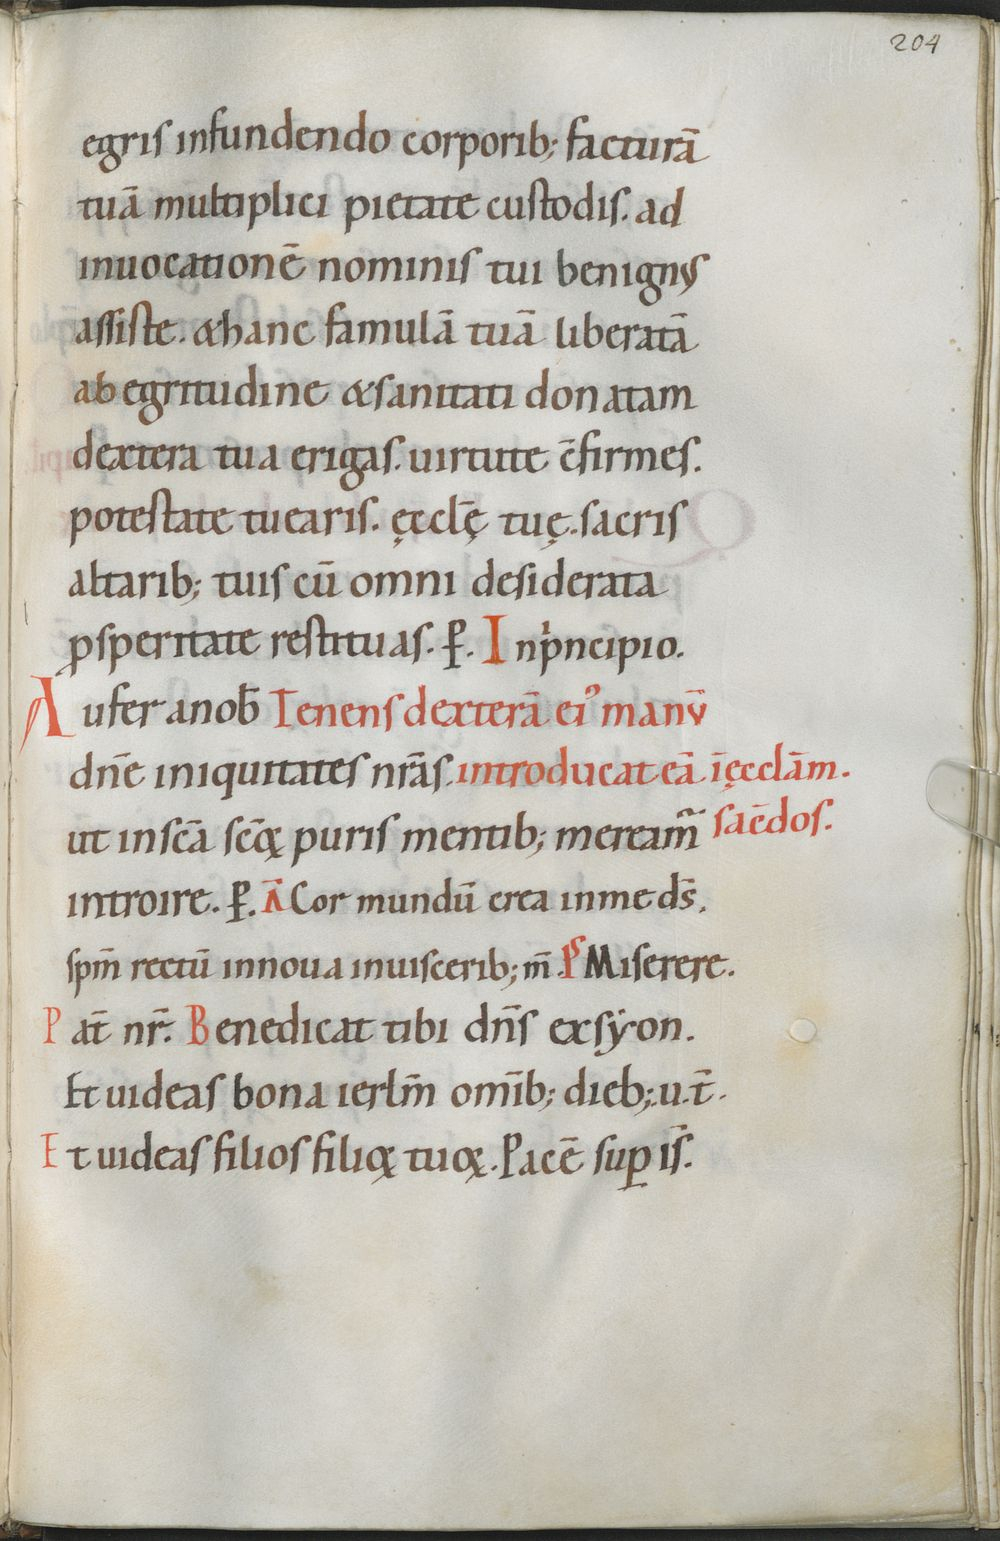 204
egris infundendo corporib; facturā
tuā multiplici pietate custodis. ad
inuocationē nominis tui benignus
assiste. & hanc famulā tuā liberatā
ab egritudine & sanitati donatam
dextera tua erigas. uirtute c̄firmes.
potestate tuearis. ęccl̄ę tuę. sacris
altarib; tuis cū omni desiderata
ꝓsperitate restituas. P̄. In pͥncipio.
Aufer a nob̄ Tenens dexterā eiꝰ manū
dn̄e iniquitates nr̄as. introducat eā ī ęccl̄am.
ut in sc̄a sc̄oꝝ puris mentib; meream̃ sac̄dos.
introire. P̄. Ā Cor mundū crea in me ds̄.
spm̄ rectū innoua in uiscerib; m̄. PS Miserere.
Pat̄ nr̄. Benedicat tibi dn̄s ex syon.
Et uideas bona ierlm̄ omīb; dieb; u. t̄.
Et uideas filios filioꝝ tuoꝝ. Pacē suꝑ isr̄.